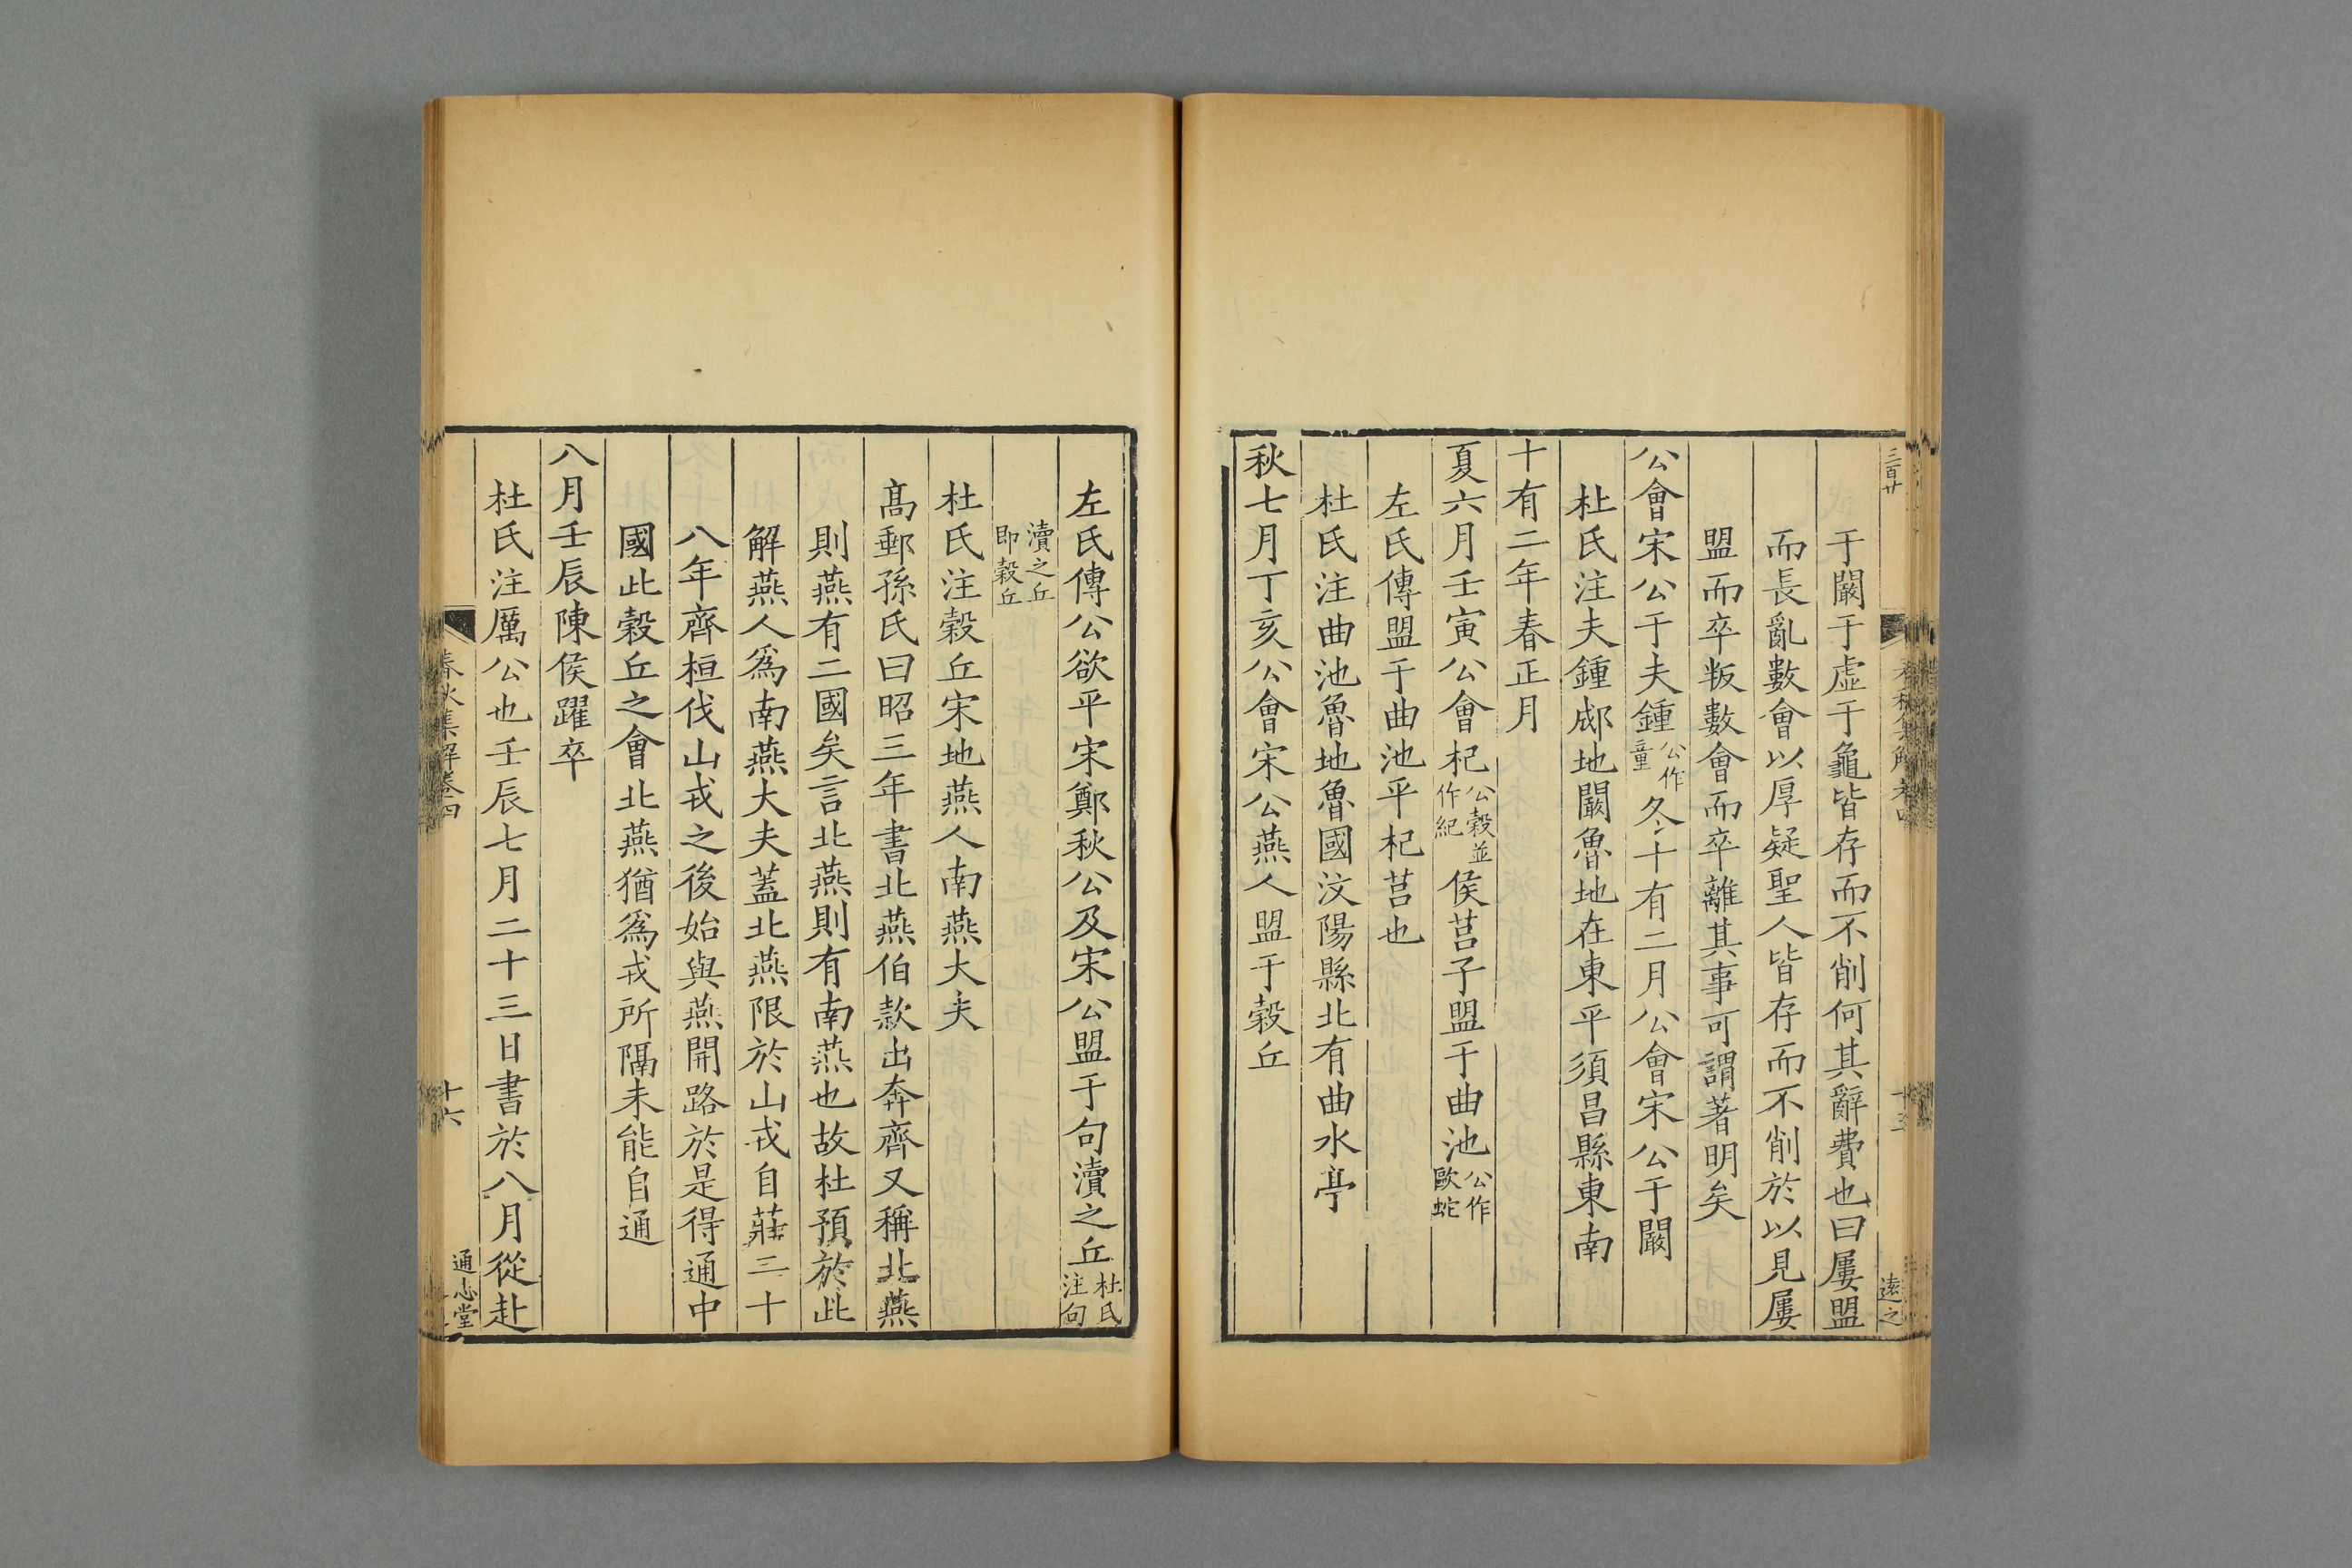 三百廿
遠之
于闞于虛于龜皆存而不削何其辭費也曰屢盟
而長亂數會以厚疑聖人皆存而不削於以見屢
盟而卒叛數會而卒離其事可謂著明矣
公會宋公于夫鍾公作童冬十有二月公會宋公于闞
杜氏注夫鍾郕地闞魯地在東平須昌縣東南
十有二年春正月
夏六月壬寅公會杞公穀並作紀侯莒子盟于曲池公作歐蛇
左氏傳盟于曲池平杞莒也
杜氏注曲池魯地魯國汶陽縣北有曲水亭
秋七月丁亥公會宋公燕人盟于穀丘
左氏傳公欲平宋鄭秋公及宋公盟于句瀆之丘杜氏注句
瀆之丘即穀丘
杜氏注穀丘宋地燕人南燕大夫
高郵孫氏曰昭三年書北燕伯款出奔齊又稱北燕
則燕有二國矣言北燕則有南燕也故杜預於此
解燕人爲南燕大夫蓋北燕限於山戎自莊三十
八年齊桓伐山戎之後始與燕開路於是得通中
國此穀丘之會北燕猶爲戎所隔未能自通
八月壬辰陳侯躍卒
杜氏注厲公也壬辰七月二十三日書於八月從赴
春秋集解卷四
十六
通志堂